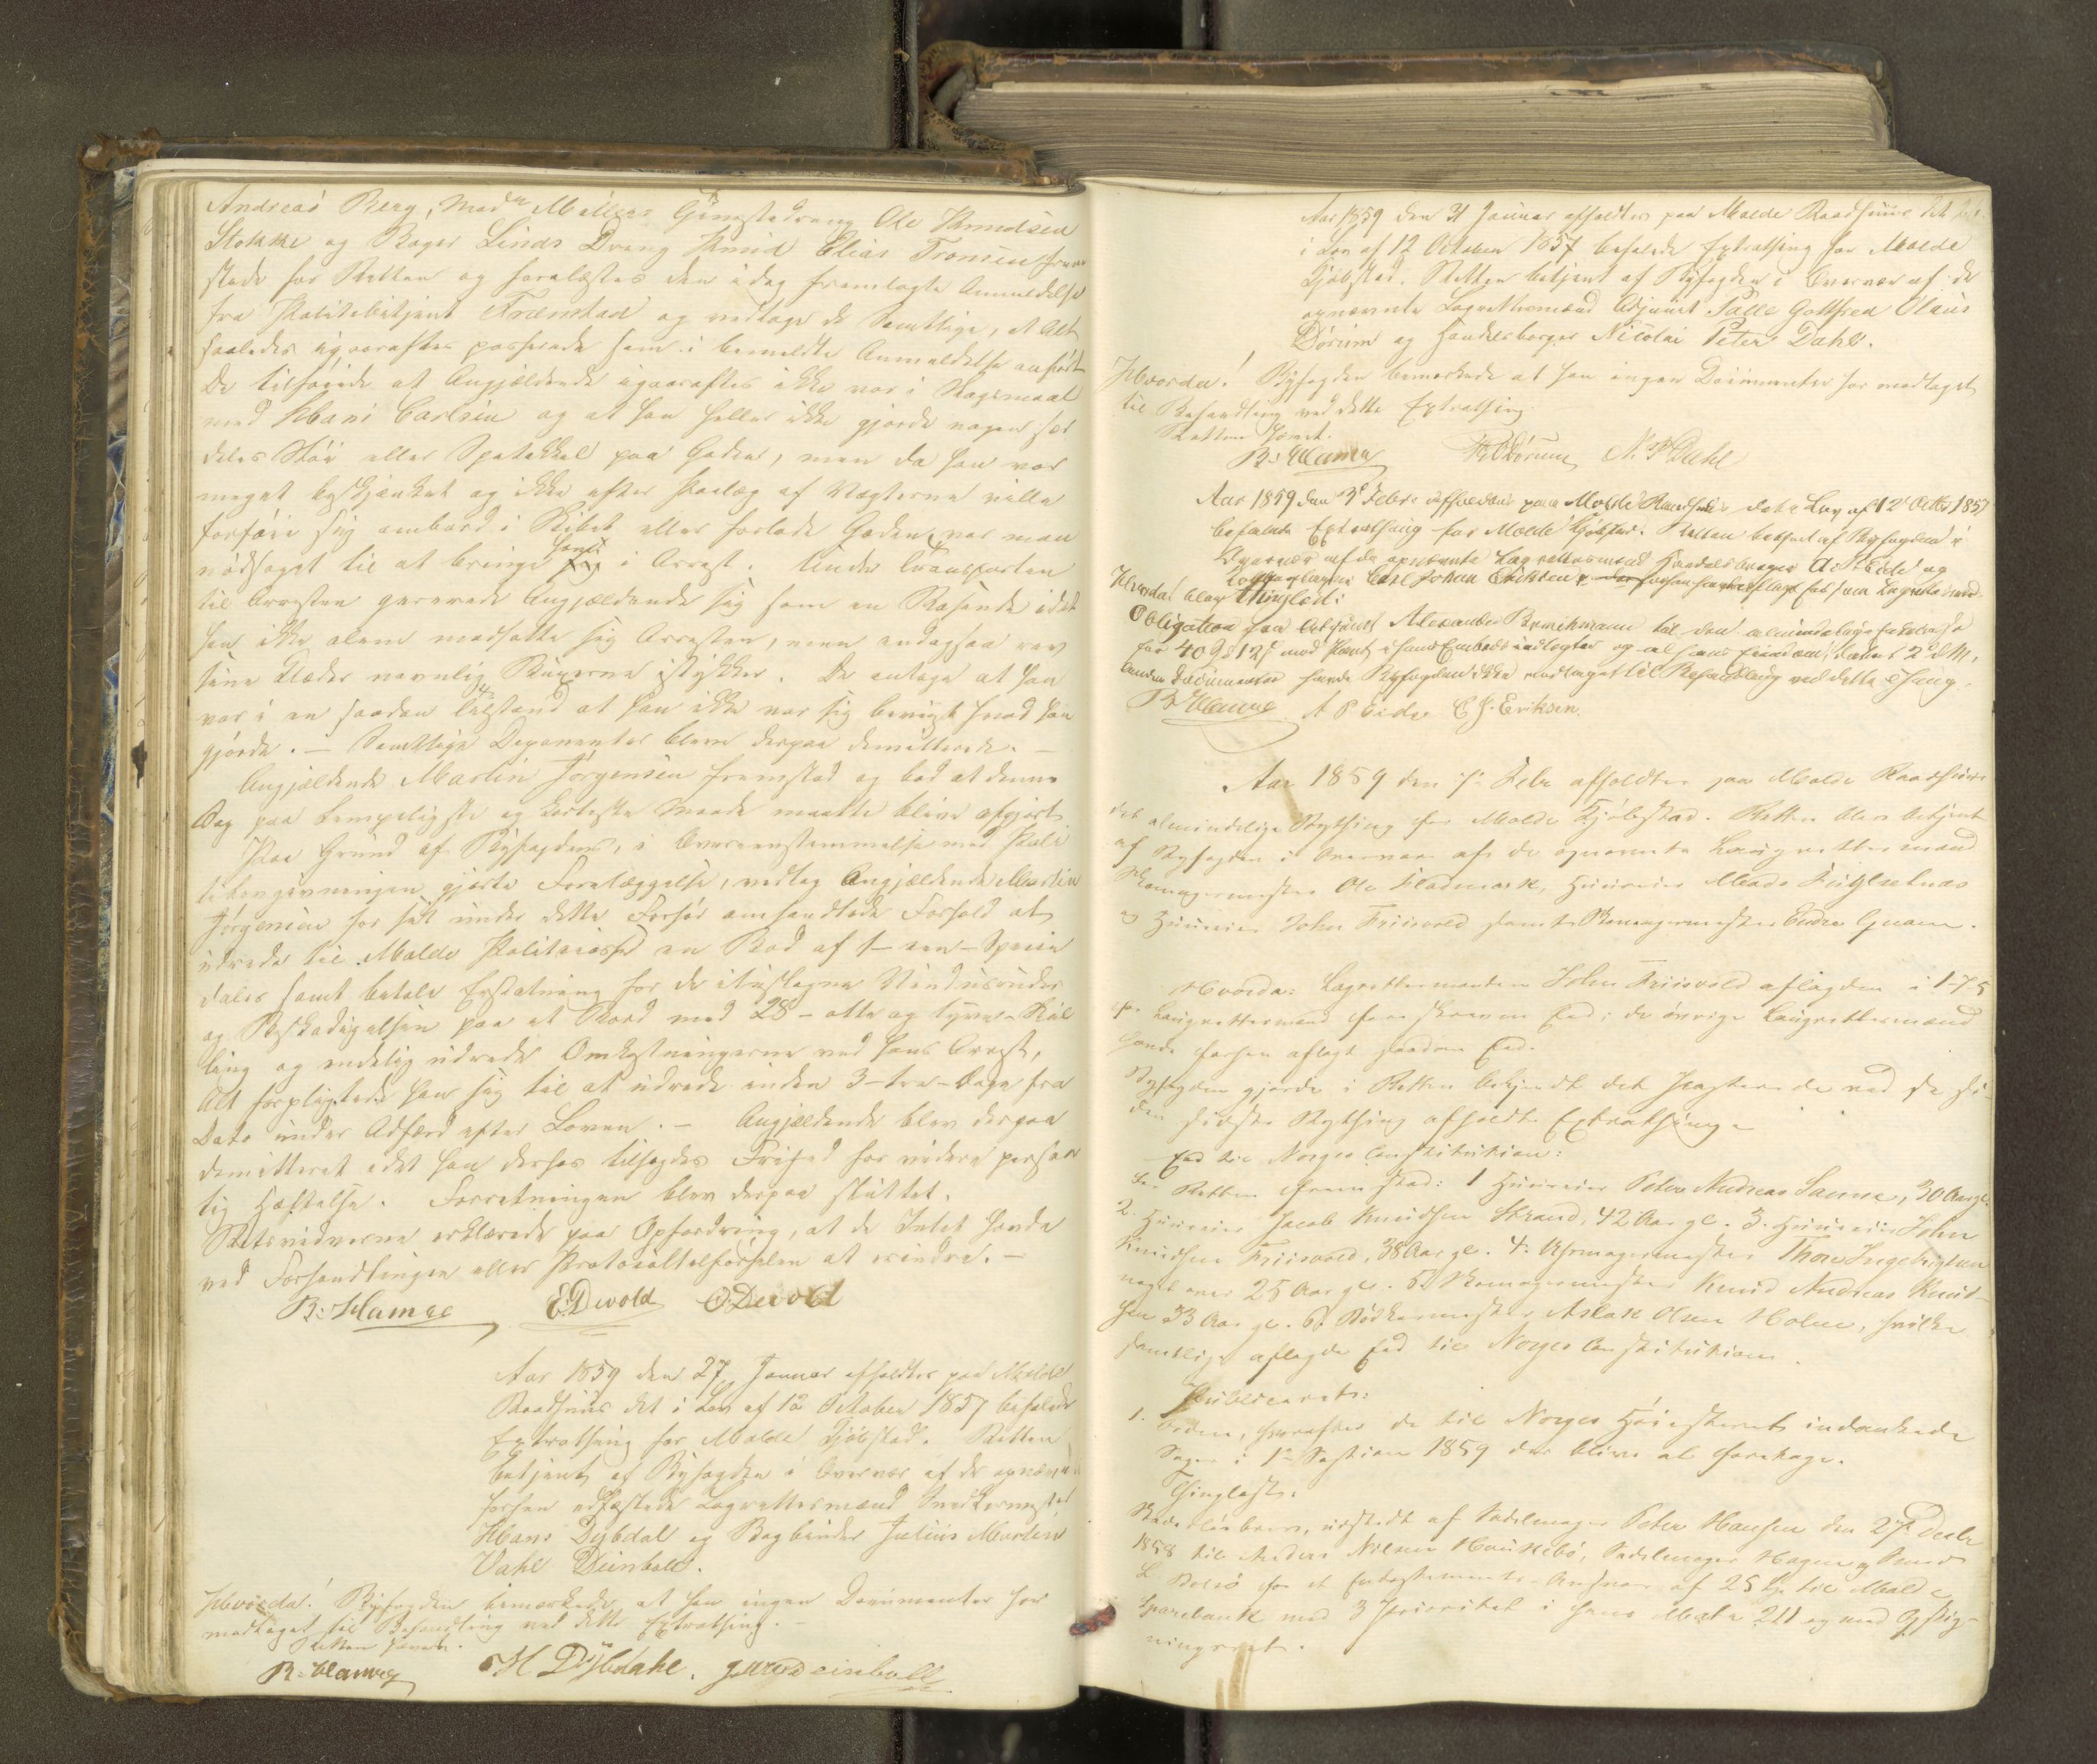 Andreas Berg, Mad. Møllers Gaardsdreng Ole Knudsen
Stokke og Bager Linds Dreng Knud Elias Tromsen frem
stode for Retten og forelæstes den idag fremlagte Anmeldelse
fra Politibetjent Frænstad og vedtoge de Samtlige, at Alt
saaledes igaaraftes passerede som i bemeldte Anmeldelse anført
De tilføiede at Angjældende igaaraftes ikke var i Slagsmaal
med Hans Carlsen og at han heller ikke gjorde nogen sær
deles Støi eller Spetakkel paa Gaden, men da han var
meget beskjænket og ikke efter Paalæg af Vægterne vilde
forføie sig ombord i Skibet eller forlade Gaden, var man
nødsaget til at bringe ham i Arrest. Under Transporten
til Arresten gererede Angjældende sig som en Rasende idet
han ikke alene modsatte sig Arresten, men endogsaa rev
sine Klæder navnlig Buxerne istykker. De antoge at han
var i en saadan Tilstand at han ikke var sig bevidst hvad han
gjorde. – Samtlige Deponenter bleve derpaa demitterede. –
Angjældende Martin Jörgensen fremstod og bad at denne
Sag paa lempeligste og korteste Maade maatte blive afgjort
Paa Grund af Byfogdens, i Overeensstemmelse med Poli
tilovgivningen gjorte Forelæggelse, vedtog Angjældende Martin
Jörgensen for sit under dette Forhør omhandlede Forhold at
udrede til Molde Politicasse en Bod af 1 – een – Specie
daler samt betale Erstatning for de itustagne Vinduesruder
og Beskadigelsen paa et Bord med 28 – otte og tyve – Skil
ling og endelig udrede Omkostningerne ved hans Arrest,
Alt forpligtede han sig til at udrede inden 3 – tre – Dage fra
Dato under Adfærd efter Loven. – Angjældende blev derpaa
demitteret idet han derhos tilsagdes Frihed for videre person
lig Hæftelse. Forretningen blev derpaa sluttet.
Retsvidnerne erklærede paa Opfordring, at de Intet havde
ved Forhandlingen eller Protocoltilførselen at erindre. –
B: Hamre E: Devold O: Devold
Aar 1859 den 27 Januar afholdtes paa Molde
Raadhuus det i Lov af 12 October 1857 befalede
Extrathing for Molde Kjöbstad. Retten
betjent af Byfogden i Overvær af de opnævnte
forhen edfæstede Lagrettesmænd Snedkermester
Hans Dybdal og Bogbinder Julius Martin
Vahl Deinboll.
Hvorda! Byfogden bemærkede at han ingen Documenter har
modtaget til Behandling ved dette Extrathing. –
Retten hævet.
B: Hamre H Dybdahl. JMV Deinboll
Aar 1859 den 31 Januar afholdtes paa Molde Raadhuus det
i Lov af 12 October 1857 befalede Extrathing for Molde
Kjøbstad. Retten betjent af Byfogden i Overvær af de
opnævnte Lagrettesmænd Adjunct Palle Gottfred Olaus
Dørum og Handelsborger Nicolai Peter Dahl.
Hvorda! Byfogden bemærkede at han ingen Documenter har modtaget
til Behandling ved dette Extrathing
Retten hævet.
B: Hamre PGODørum N. P Dahl
Aar 1859 den 3 Febr: afholdtes paa Molde Raadhuus det i Lov af 12 Octbr 1857
befalede Extrathing for Molde Kjøbstad. Retten betjent af Byfogden i
Overvær af de opnævnte Lagrettesmænd Handelsborger A. P Eide og
Carl Johan Eriksen
Hvorda! blev thinglæst:
Obligation fra Alexander til den almindelige
for 409 12 med Pant i hans Embeds indtægter og
Andre Documenter havde Byfogden ikke modtaget til Behandling ved dette Thing.
B Hamre A P Eide C. J. Eriksen.
Aar 1859 den 7 Febr afholdtes paa Molde Raadhuus
det almindelige Bything for Molde Kjøbstad. Retten blev betjent
af Byfogden i Overvær af de opnævnte Laugrettesmænd
Skomagermester Ole Flademark, Huuseier Mads Fuglsetnæs
og Huuseier John Friisvold samt Skomagermester Endre Gnarn.
Hvorda: Lagrettesmanden John Friisvold aflagde den i 1-7-5
for Laugrettesmænd foreskrevne Eed; de øvrige Laugrettesmænd
havde forhen aflagt saadan Eed.
Byfogden gjorde i Retten bekjendt det Passerede ved de si-
den sidste Bything afholdte Extrathinge
Eed til Norges Constitution:
For Retten fremstod: 1 Huuseier Peter Andreas Sanne, 30 Aar gl.
2. Huuseier Jacob Knudsen Strand, 42 Aar gl. 3. Huuseier John
Knudsen Friisvold, 38 Aar gl. 4. Uhrmagermester Thore Ingebrigtsen
noget over 25 Aar gl. 5. Skomagermester Knud Andreas Knud-
sen 33 Aar gl. 6. Bødkermester Aslak Olsen Holm, hvilke
samtlige aflagde Eed til Norges Constitution.
Publiceret:
1. Orden, hvorefter de til Norges Høiesteret indankede
Sager i 1ste Session 1859 der blive at foretage.
Thinglæst:
Skadesløsbrev, udstedt af Sadelmager Peter Hansen den 27 Decbr
1858 til Anders Nilsen Haukebö, Sadelmager Hagen og
L Bolsø for et Endossements-Ansvar af 25 Spd til Molde
Sparebank med 3 Prioritet i hans Matr 211 og med Opsig-
ningsret.